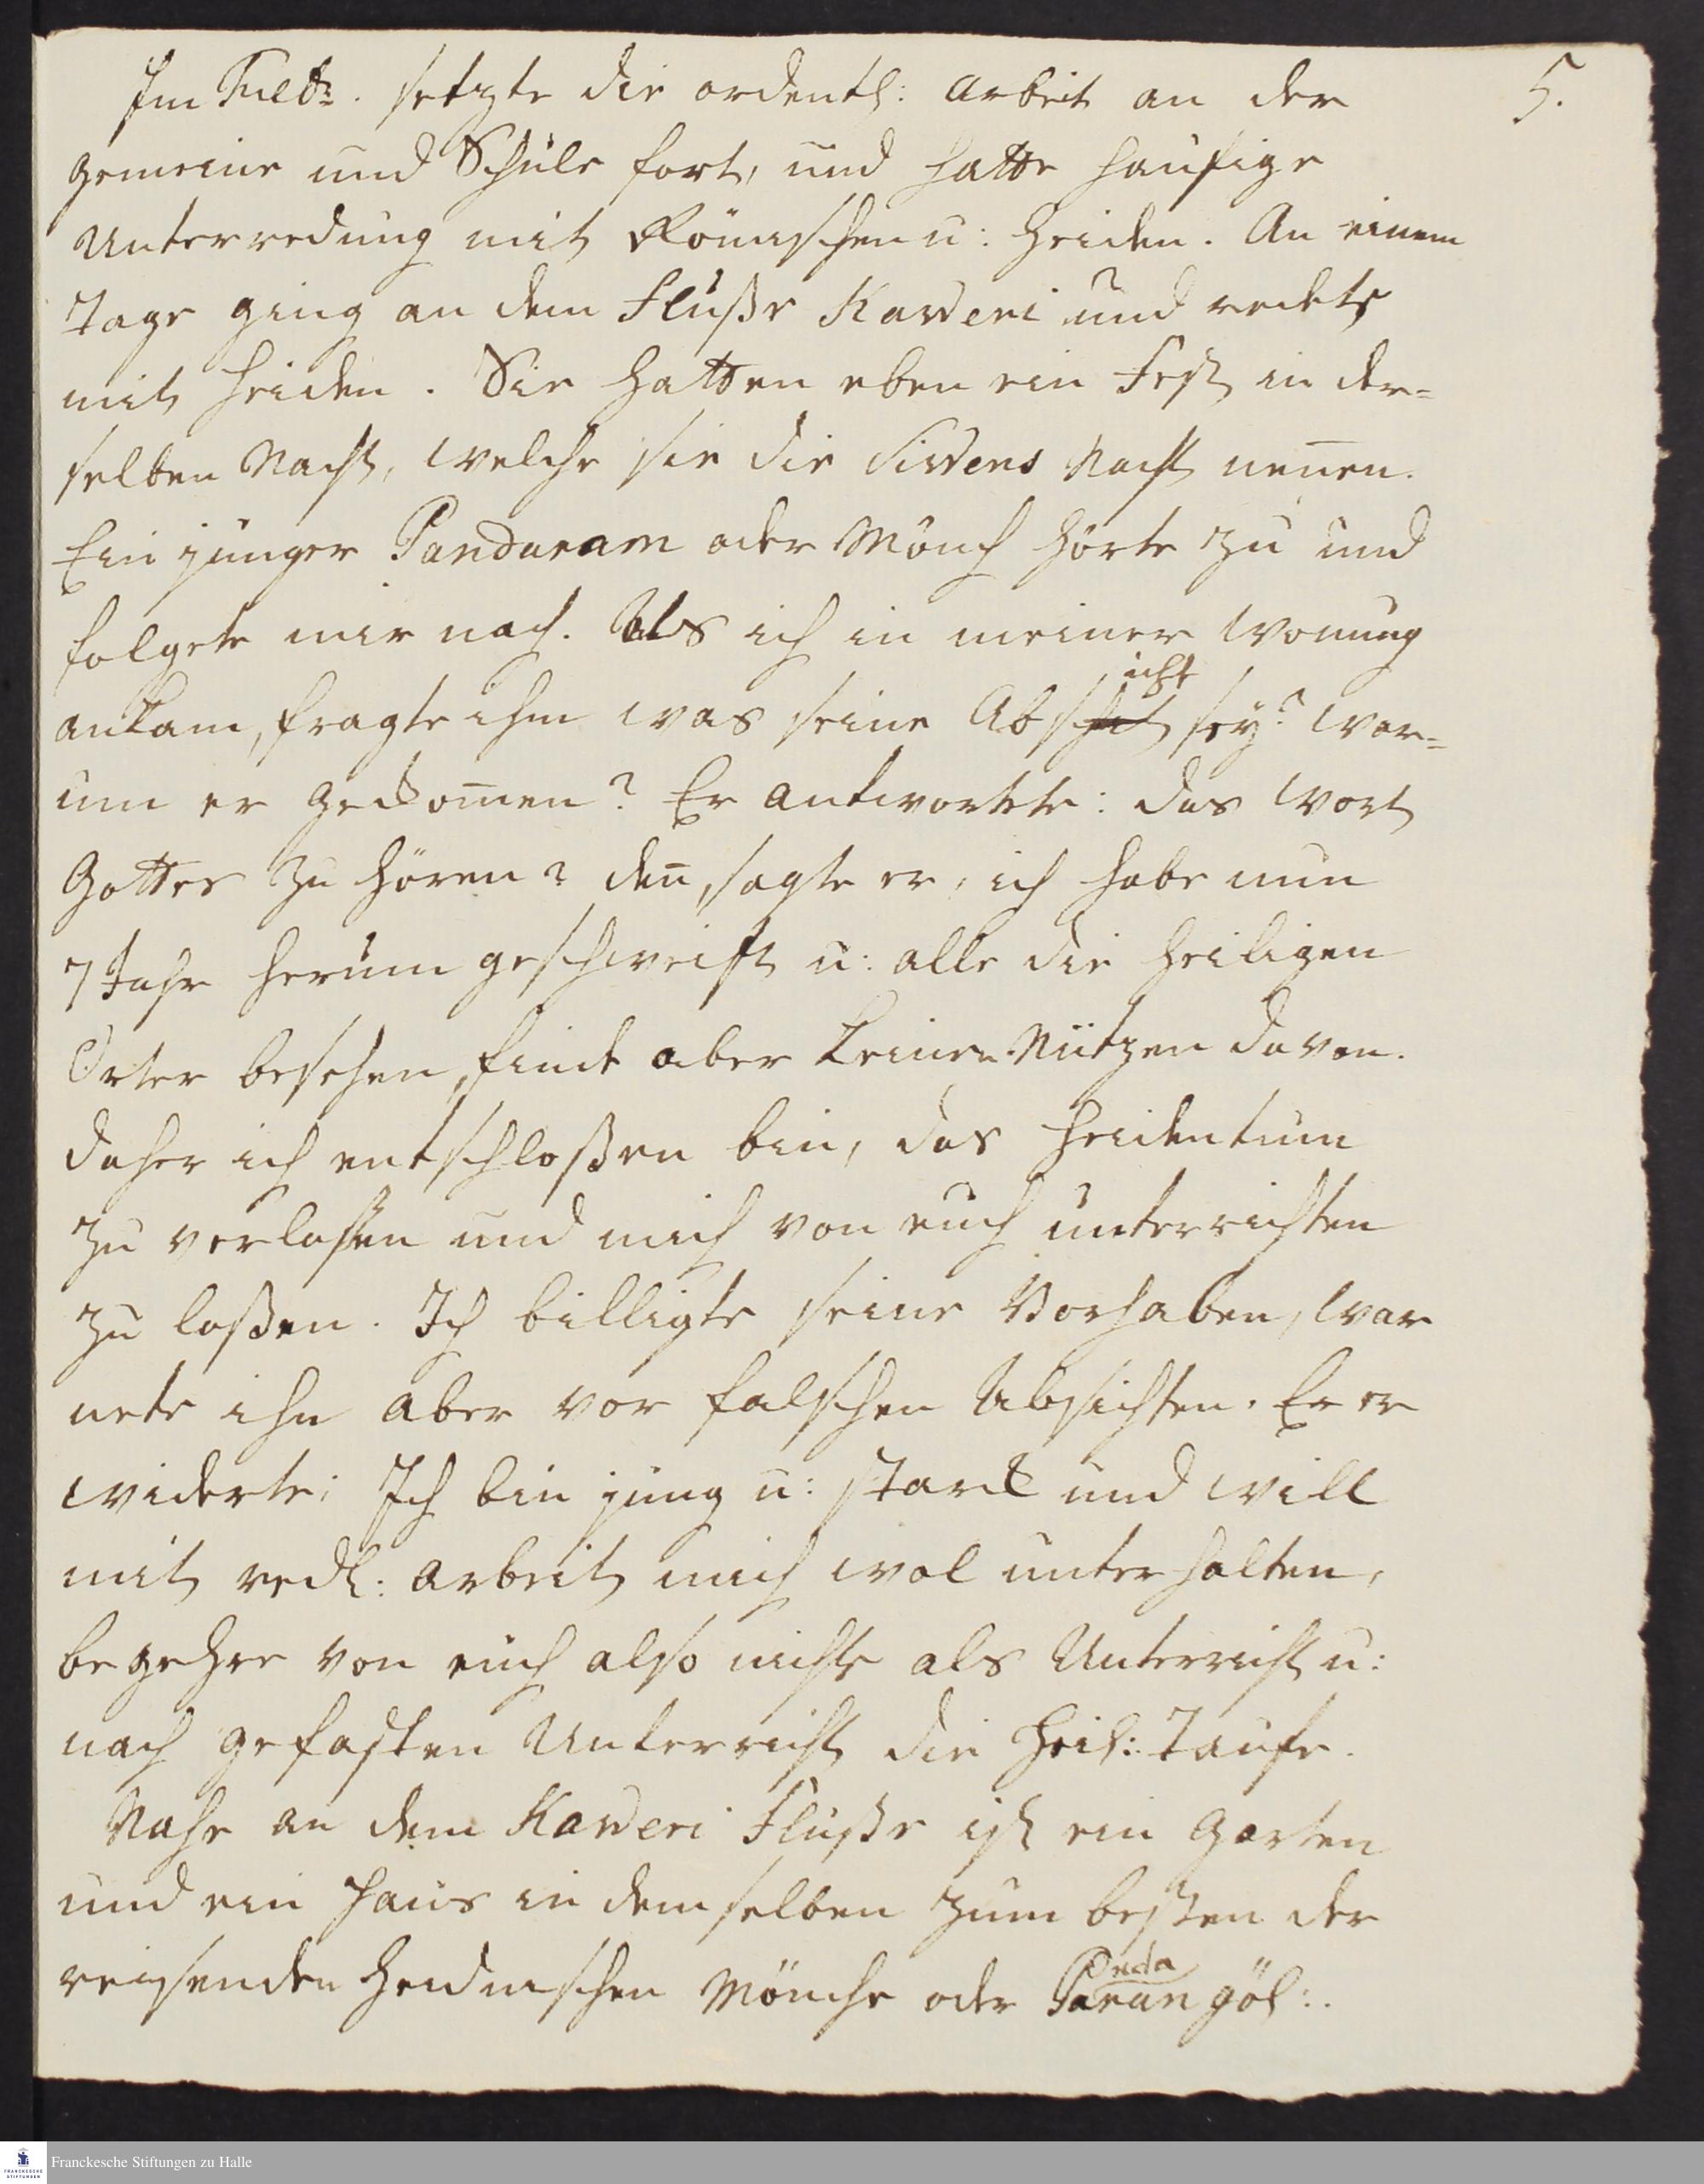 5.
Im Febr: setzte die ordentl: Arbeit an der
gemeine und Schule fort, und hatte häufige
Unterredung mit Römischen u: Heiden. An einem
Tage ging an dem Flusse Kaweri und redete
mit Heiden. Sie hatten eben ein Fest in der=
selben Nacht, welche sie die Siwens Nacht nen̄en.
Ein junger Pandaram oder Mönch hörte zu und
folgete mir nach. Als ich in meiner Wonung
ankam, fragte ihm was seine Absicht sey? war=
um er gekom̄en? Er antwortete: das Wort
Gottes zu hören? den̄, sagte er, ich habe nun
7 Jahr herum geschweift u: alle die heiligen
Örter besehen, finde aber keinen Nutzen davon.
daher ich entschloßen bin, das Heidentum
zu verlaßen und mich von euch unterrichten
zu laßen. Ich billigte seine Vorhaben, war
nete ihn aber vor falschen Absichten. Er er
widerte: Ich bin jung u: stark und will
mit redl: Arbeit mich wol unterhalten,
begehre von euch also nichts als Unterricht u:
nach gefaßten Unterricht die Heil: Taufe.
Nahe an dem Kaweri Fluße ist ein Garten
und ein Haus in demselben zum besten der
reisenden heidnischen Mönche oder Pandarangöl:.
Franckesche Stiftungen zu Halle
FRANCKESCHE
STIFTUNGEN